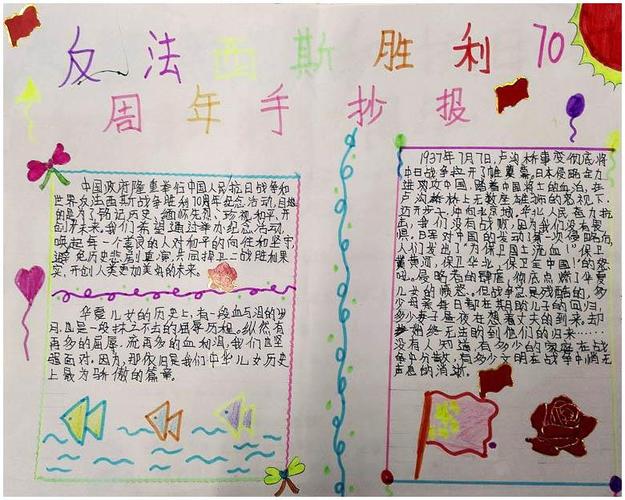 反法西斯胜利70
周年手抄报
中国政府隆重举行中国人民抗日战争和
世界反法西斯战争胜利70周年纪念活动,目的
的是为了铭记历史、缅怀先烈、珍视和平、开
创未来,我们希望通过举办纪念活动,
唤起每一个善良的人对和平的向往和坚守
避免历史悲剧重演,共同捍卫二战胜利果
实,开创人类更加美好的未来。
华夏儿女的历史上,有一段血与泪的岁
月,且是一段抹之不去的屈辱历程。纵然有
再多的屈辱,流再多的血和泪,我们且坚
强面对。因为,那依旧是我们中华儿女历史
上最为骄傲的篇章。
1937年7月7日,卢沟桥事变彻底将
中日战争拉开了帷幕。日本侵略全力
进攻中国,踏着中国将士的血泊,在
卢沟桥桥上无数座雄狮的怒视下,
迈开步伐冲向北京城,华北人民奋力抗
击,我们没有战败,因为我们没有畏
惧,日军对中国的发动了第一次侵略后,
人们发出了“为保卫国土流血”“保卫
黄河,保卫华北、保卫全中国”的怒
吼。侵略者的肆虐,彻底点燃了华夏
儿女的愤怒。但战争总是残酷的,多
少母亲每日都在期盼儿子的回归,
多少妻子昼夜在想着丈夫的到来,却
始终无法的到他们的归来……
没有人知道有多少的家庭在战
争中分散,有多少文明在战争中悄无
声息的消逝。